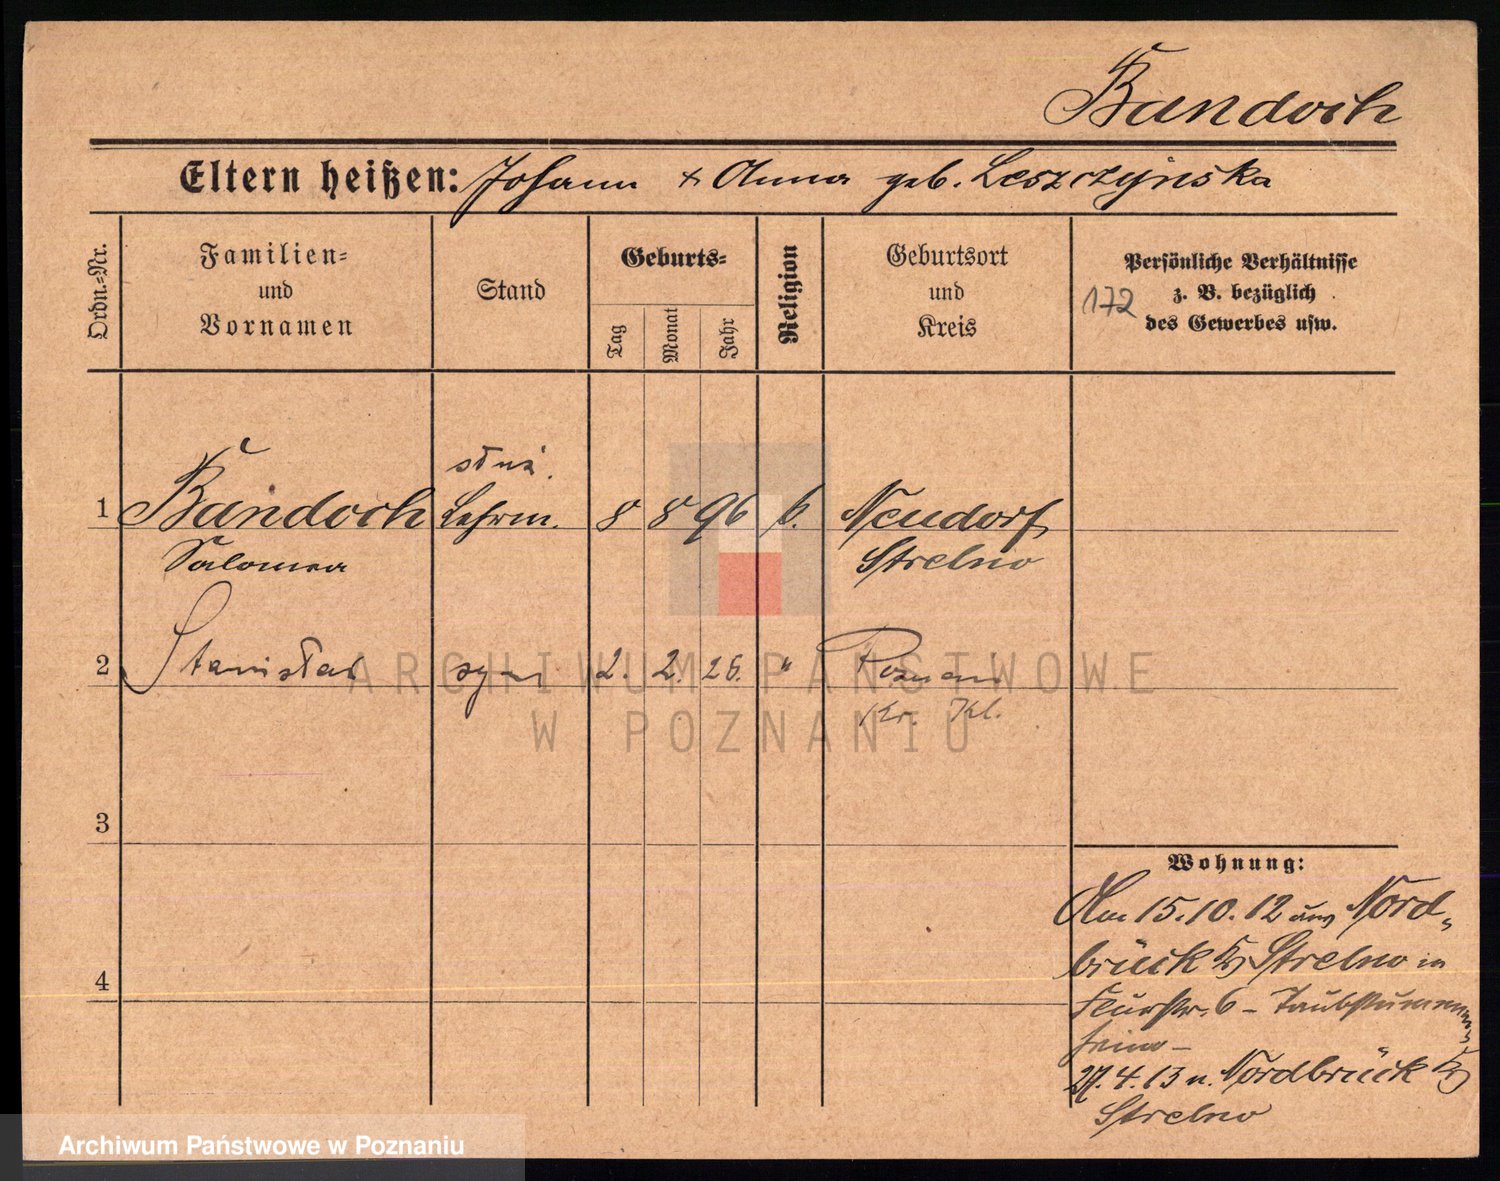 Bandoch
Eltern heißen: Johann + Anna geb. Leszczyńska
Ordn.-Nr.
Familien- und Vornamen
Stand
Geburts-
Tag
Monat
Jahr
Religion
Geburtsort und Kreis
Persönliche Verhältnisse z. B. bezüglich des Gewerbes usw.
172
służ.
1 Bandoch Lehrm. 8 8 96 k. Neudorf
Salomea Strelno
2 Stanisław syn 2. 2. 26. " Poznań
Kr. Kl.
3
4
Wohnung:
Am 15.10.12 aus Nord-
brück Kr Strelno in
Flurstr. 6 - Taubstummen
heim -
27.4.13 n. Nordbrück Kr
Strelno
ARCHIWUM PAŃSTWOWE
W POZNANIU
Archiwum Państwowe w Poznaniu